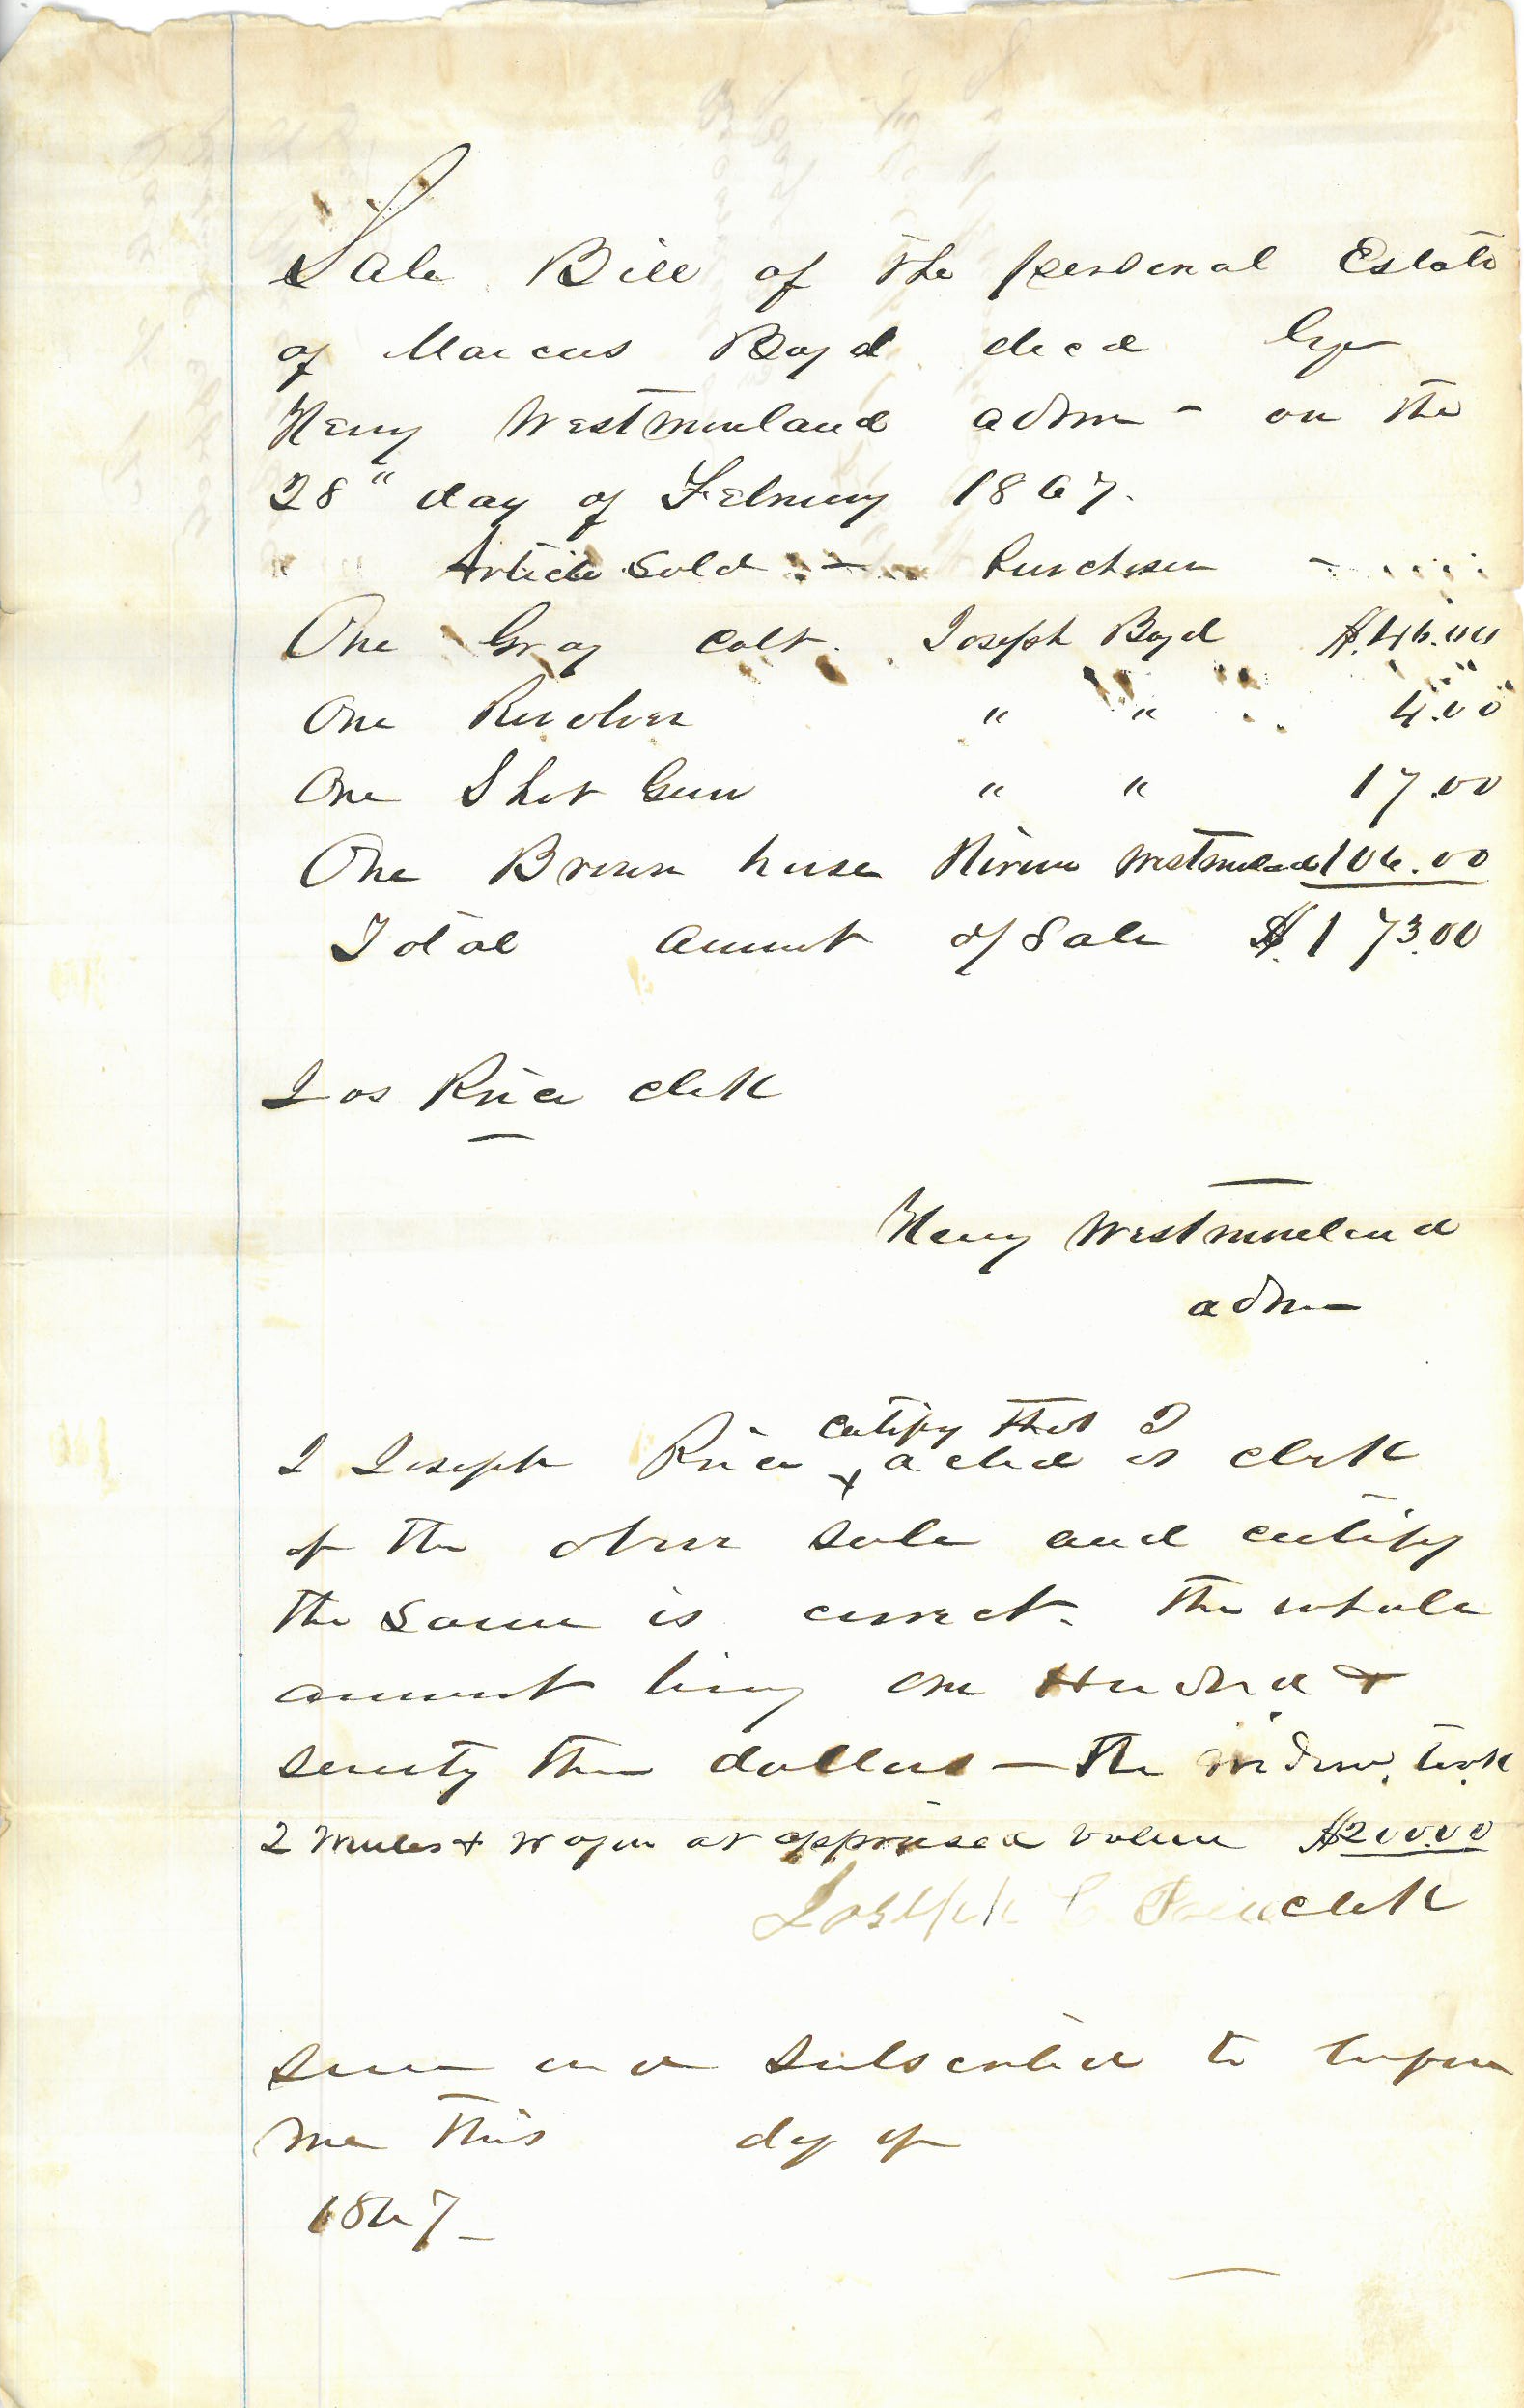 Sale Bill of the personal Estate
of Marcus Boyd decd by
Henry Westmoreland admr - on the
28" day of February 1867.
Article Sold - Purchaser -
One Gray Colt. Joseph Boyd $.46.00
One Revolver " " 4.00
One Shot Gun " " 17.00
One Brown horse Hiram Westmoreland 106.00
Total amount of Sale $.173.00
Jos Rice clerk
Henry Westmoreland
admr
certify that I
I Joseph Rice + acted as clerk
of the above sale and certify
the same is correct. the whole
amount being one Hundred +
seventy three dollars - the widow took
2 mules + wagon at appraised value $200.00
Joseph C. Rice clerk
sworn and subscribed to before
me this day of
1867